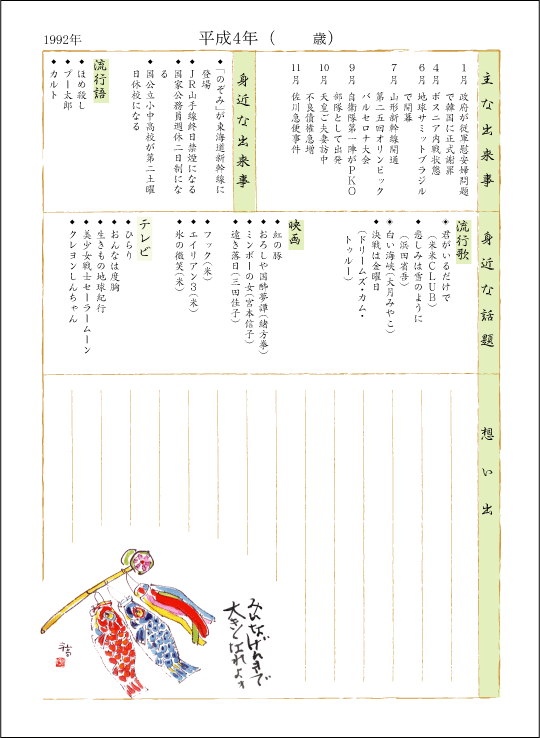 1992年
平成4年（　　歳）
主な出来事
1月 政府が従軍慰安婦問題
で韓国に正式謝罪
4月 ボスニア内戦状態
6月 地球サミットブラジル
で開幕
7月 山形新幹線開通
第二五回オリンピック
バルセロナ大会
9月 自衛隊第一陣がPKO
部隊として出発
10月 天皇ご夫妻訪中
不良債権急増
11月 佐川急便事件
身近な出来事
◆「のぞみ」が東海道新幹線に
登場
◆JR山手線終日禁煙になる
◆国家公務員週休二日制にな
る
◆国公立小中高校が第二土曜
日休校になる
流行語
◆ほめ殺し
◆プー太郎
◆カルト
身近な話題
流行歌
◆君がいるだけで
（米米CLUB）
◆悲しみは雪のように
（浜田省吾）
◆白い海峡（大月みやこ）
◆決戦は金曜日
（ドリームズ・カム・
トゥルー）
映画
◆紅の豚
◆おろしや国酔夢譚（緒方拳）
◆ミンボーの女（宮本信子）
◆遠き落日（三田佳子）
◆フック（米）
◆エイリアン3（米）
◆氷の微笑（米）
テレビ
◆ひらり
◆おんなは度胸
◆生きもの地球紀行
◆美少女戦士セーラームーン
◆クレヨンしんちゃん
想い出
みんなげんきで
大きくなれよぉ